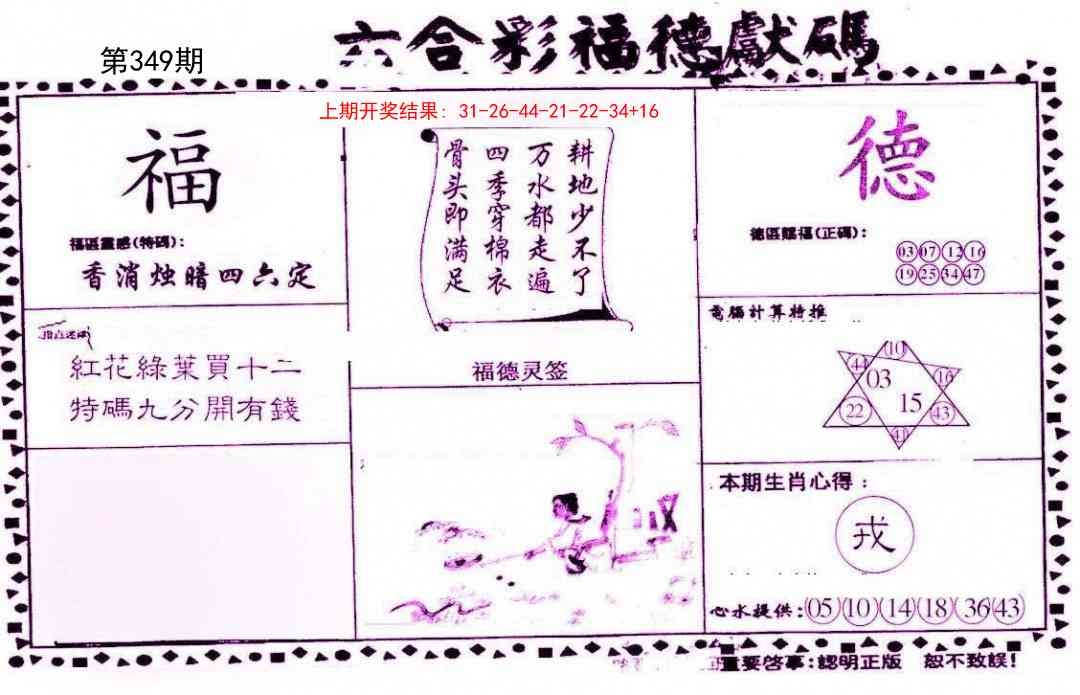 六合彩福德獻碼
第349期
上期开奖结果：31-26-44-21-22-34+16
福
福區靈感(特碼):
香消烛暗四六定
紅花綠葉買十二
特碼九分開有錢
耕地少不了
万水都走遍
四季穿棉衣
骨头即满足
福德灵签
德
德區賜福(正碼):
03 07 12 16
19 25 34 47
電腦計算特推
10
44 03 16
22 15 43
41
本期生肖心得：
戎
心水提供:05 10 14 18 36 43
重要啓事:認明正版 恕不致誤!